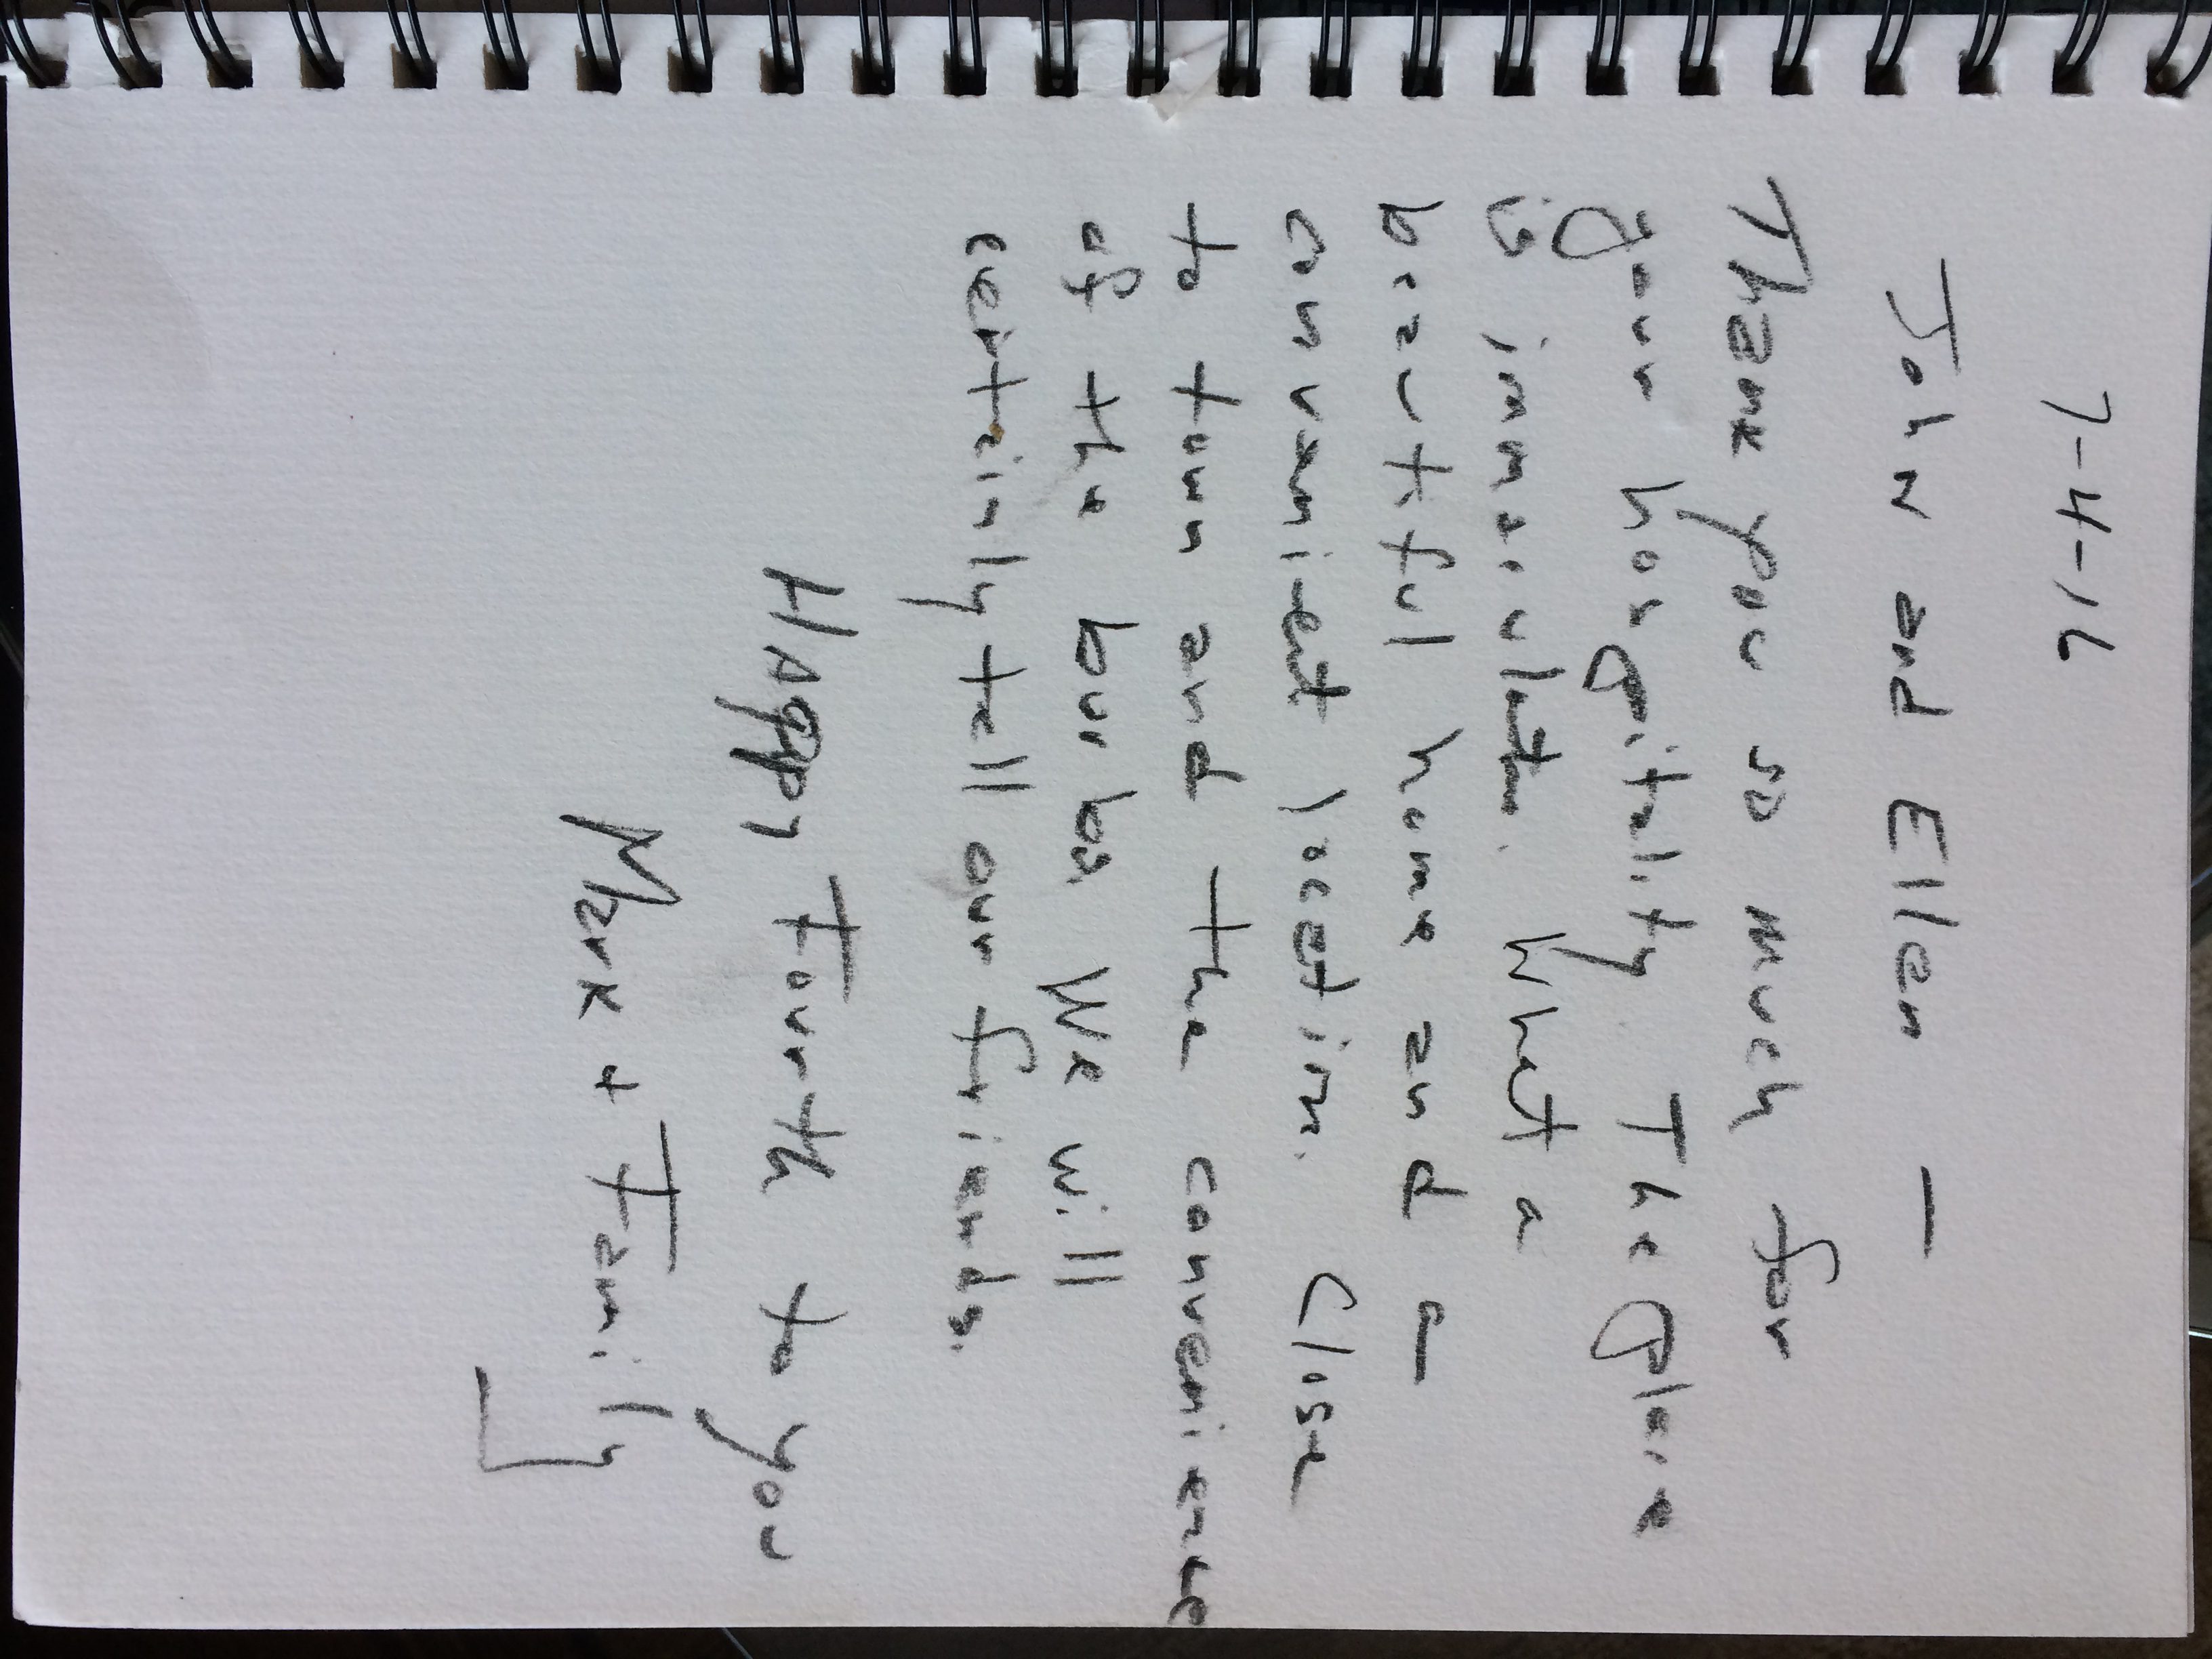 7-4-16
John and Ellen —
Thank you so much for
your hospitality The place
is immaculate. What a
beautiful home and a
convenient location. Close
to town and the convenience
of the burbs We will
certainly tell our friends.
HAppy Fourth to you
Mark + Family